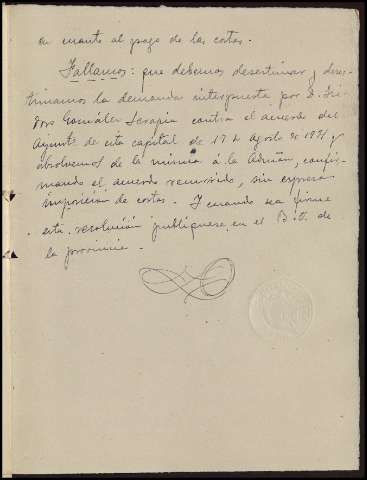 en cuanto al pago de las costas.
Fallamos: que debemos desestimar y deses-
timamos la demanda interpuesta por D. Isi-
doro González Serapia contra el acuerdo del
Ayunto de esta capital de 17 de Agosto de 1931 y
absolvemos de la misma á la Admón, confir-
mando el acuerdo recurrido, sin expresa
imposición de costas. Y cuando sea firme
esta resolución publíquese en el B. O. de
la provincia.